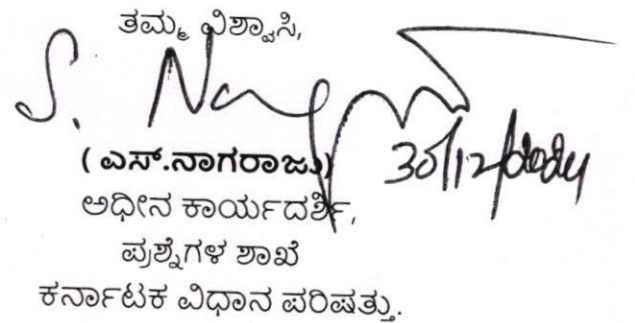 ತಮ್ಮ ವಿಶ್ವಾಸಿ,
S. Nagaraju
(ಎಸ್.ನಾಗರಾಜು) 30/12/2024
ಅಧೀನ ಕಾರ್ಯದರ್ಶಿ,
ಪ್ರಶ್ನೆಗಳ ಶಾಖೆ
ಕರ್ನಾಟಕ ವಿಧಾನ ಪರಿಷತ್ತು.